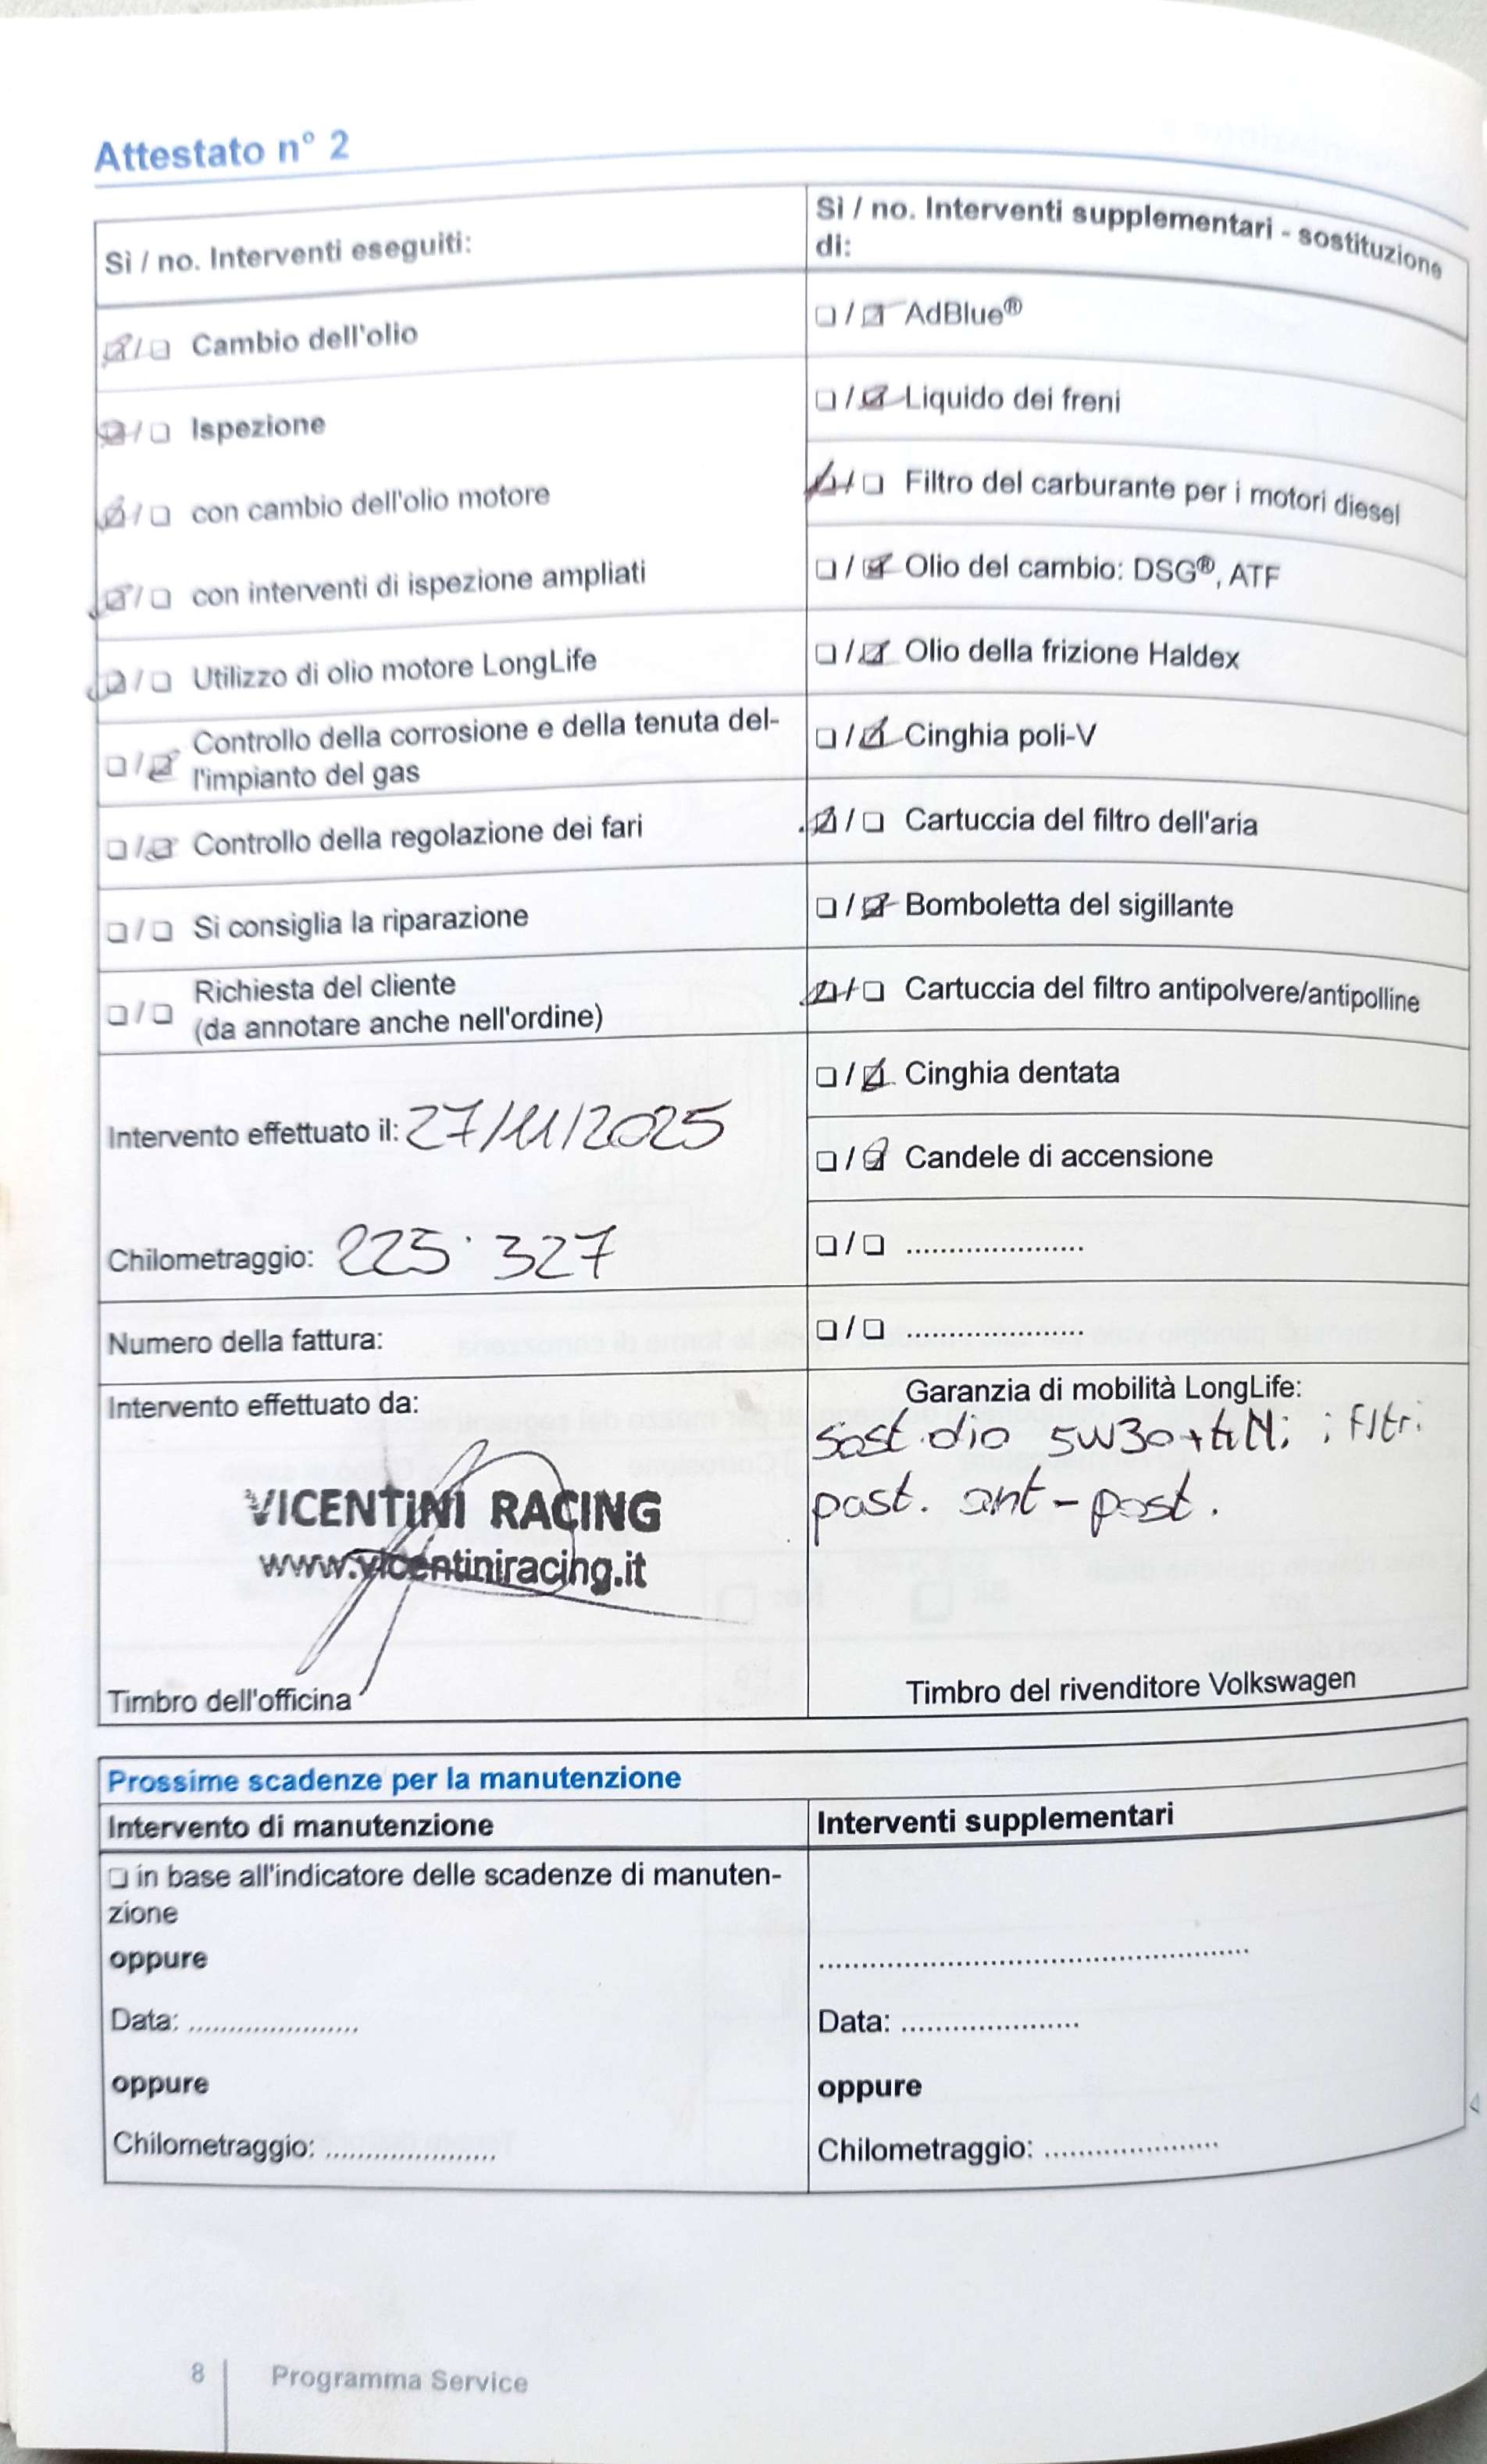 Attestato n° 2
Sì / no. Interventi eseguiti:
☑ / ☐ Cambio dell'olio
☑ / ☐ Ispezione
☑ / ☐ con cambio dell'olio motore
☑ / ☐ con interventi di ispezione ampliati
☑ / ☐ Utilizzo di olio motore LongLife
☐ / ☑ Controllo della corrosione e della tenuta del-
l'impianto del gas
☐ / ☑ Controllo della regolazione dei fari
☐ / ☐ Si consiglia la riparazione
☐ / ☐ Richiesta del cliente
(da annotare anche nell'ordine)
Intervento effettuato il: 27/11/2025
Chilometraggio: 225.327
Numero della fattura:
Intervento effettuato da:
VICENTINI RACING
www.vicentiniracing.it
Timbro dell'officina
Sì / no. Interventi supplementari - sostituzione
di:
☐ / ☑ AdBlue®
☐ / ☑ Liquido dei freni
☑ / ☐ Filtro del carburante per i motori diesel
☐ / ☑ Olio del cambio: DSG®, ATF
☐ / ☑ Olio della frizione Haldex
☐ / ☑ Cinghia poli-V
☑ / ☐ Cartuccia del filtro dell'aria
☐ / ☑ Bomboletta del sigillante
☑ / ☐ Cartuccia del filtro antipolvere/antipolline
☐ / ☑ Cinghia dentata
☐ / ☑ Candele di accensione
☐ / ☐ ......................
☐ / ☐ ......................
Garanzia di mobilità LongLife:
Sost. olio 5W30 + filtri
past. ant - post.
Timbro del rivenditore Volkswagen
Prossime scadenze per la manutenzione
Intervento di manutenzione
☐ in base all'indicatore delle scadenze di manuten-
zione
oppure
Data: .....................
oppure
Chilometraggio: .....................
Interventi supplementari
....................................................
Data: .....................
oppure
Chilometraggio: .....................
8 Programma Service